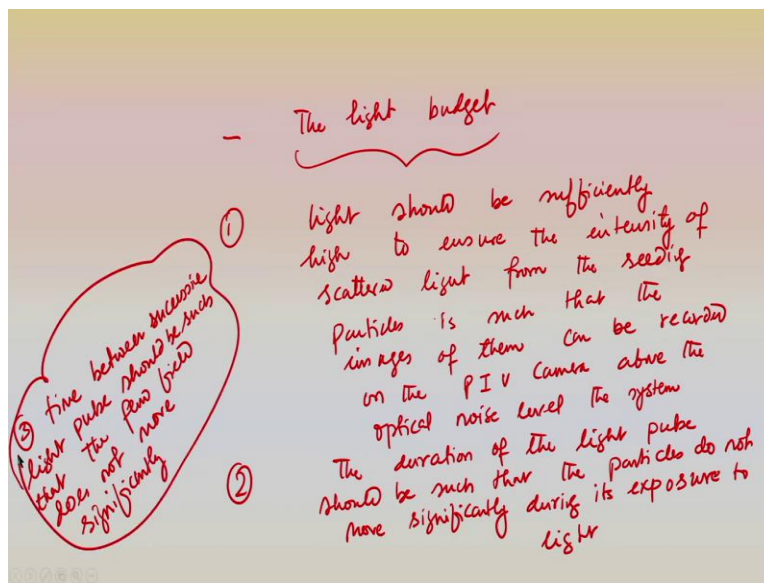 - The light budget
① light should be sufficiently
high to ensure the intensity of
scattered light from the seeding
particles is such that the
images of them can be recorded
on the PIV camera above the
optical noise level the system
② The duration of the light pulse
should be such that the particles do not
move significantly during its exposure to
light
③ time between successive
light pulse should be such
that the flow field
does not move
significantly